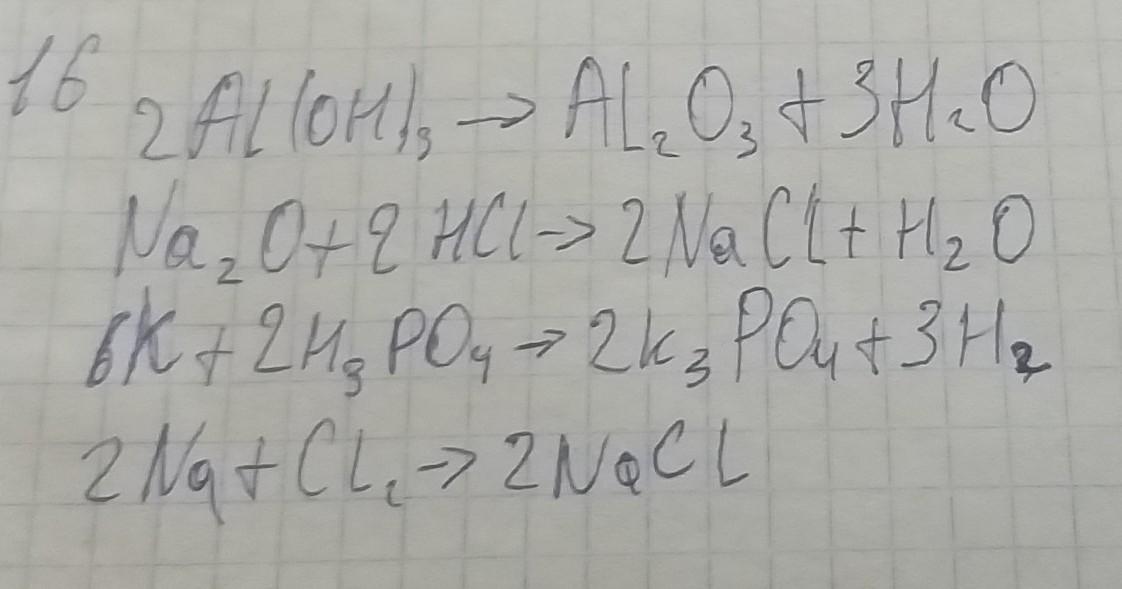 16 2Al(OH)₃ → Al₂O₃ + 3H₂O
Na₂O + 2HCl → 2NaCl + H₂O
6K + 2H₃PO₄ → 2K₃PO₄ + 3H₂
2Na + Cl₂ → 2NaCl